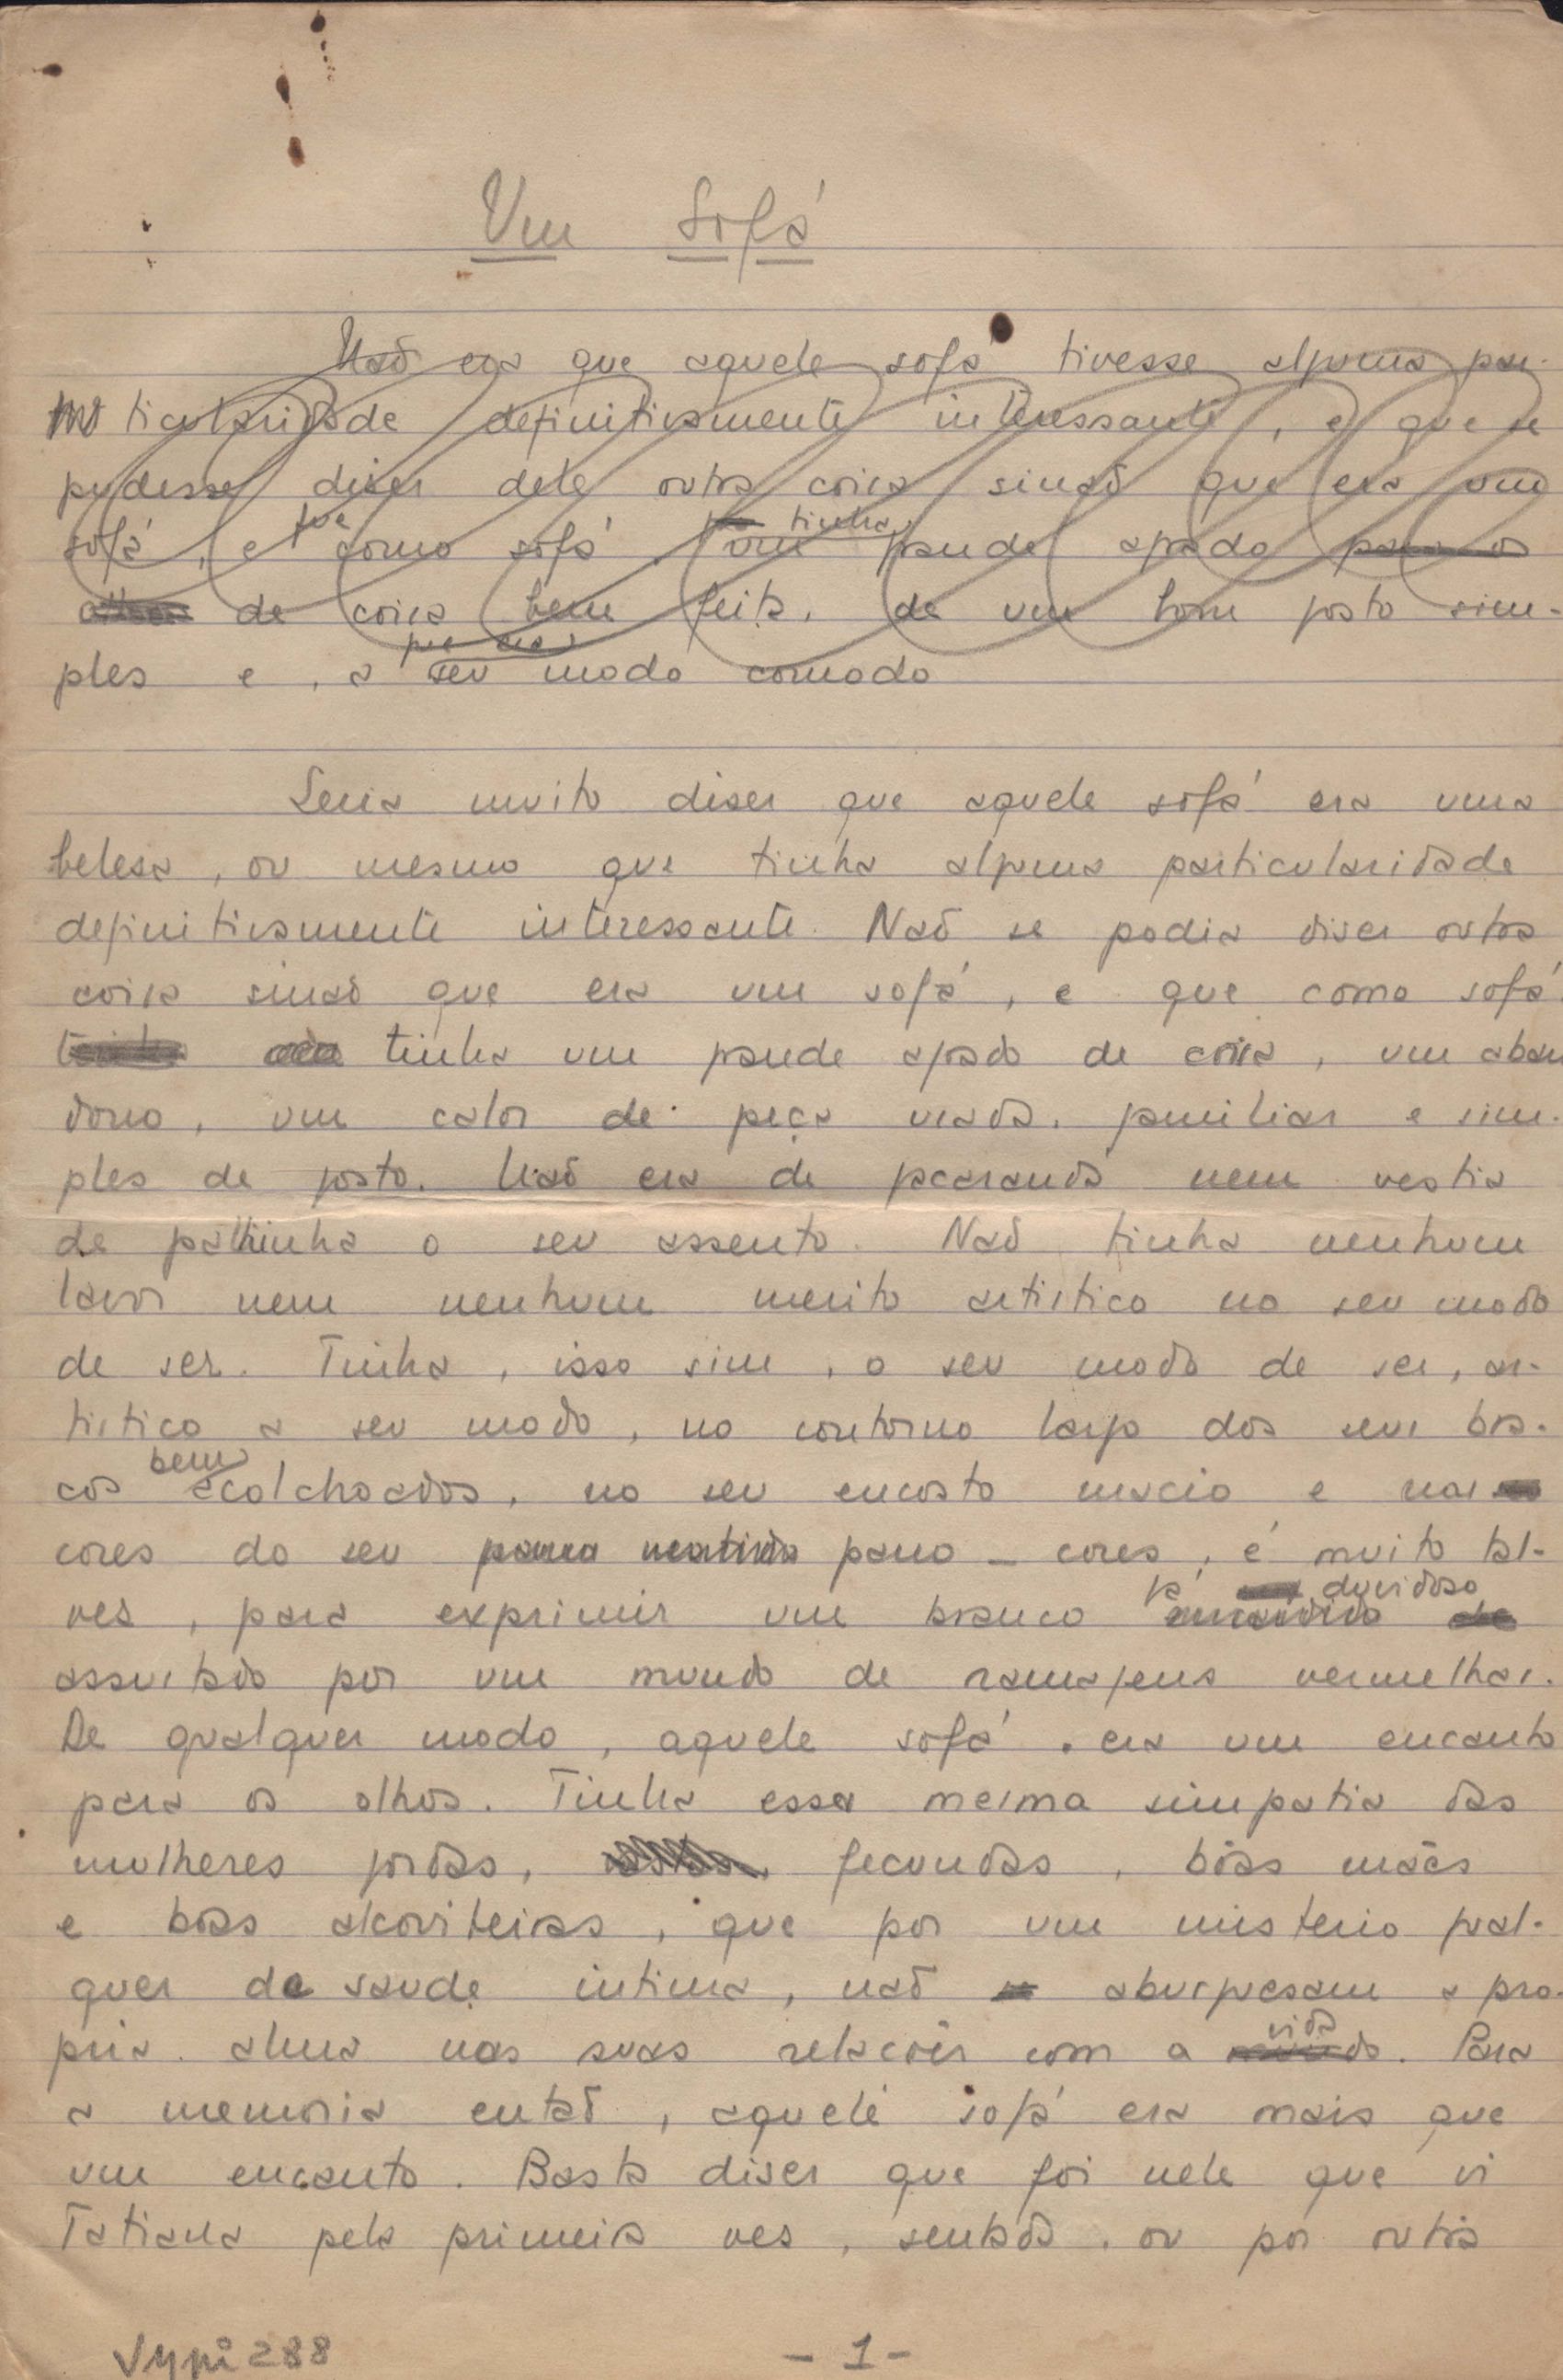 Um Sofá
Naõ era que aquele sofá tivesse alguma par-
ticularidade definitivamente interessante, e que se
pudesse diser dele outra coisa sinaõ que era um
sofá, e que como sofá tinha um grande agrado para os
olhos de coisa bem feita, de um bom gosto sim-
ples e, a seu modo comodo
Seria muito diser que aquele sofá era uma
belesa, ou mesmo que tinha alguma particularidade
definitivamente interessante. Naõ se podia diser outra
coisa sinaõ que era um sofá, e que como sofá
tinha um grande agrado de coisa, um aban
dono, um calor de peça usada, familiar e sim-
ples de gosto. Naõ era de jacarandá nem vestia
de palhinha o seu assento. Naõ tinha nenhum
lavor nem nenhum merito artistico no seu modo
de ser. Tinha, isso sim, o seu modo de ser, ar-
tistico a seu modo, no contorno largo dos seus bra-
cos bem acolchoados, no seu encosto macio e nas
cores do seu pano – cores, é muito tal-
ves, para exprimir um branco já duvidoso
assustado por um mundo de ramagens vermelhas.
De qualquer modo, aquele sofá era um encanto
para os olhos. Tinha essa mesma simpatia das
mulheres gordas, fecundas, bôas mães
e boas alcoviteiras, que por um misterio qual-
quer de saude intima, naõ aburguesam a pro-
pria alma nas suas relacões com a vida. Para
a memoria entaõ, aquele sofá era mais que
um encanto. Basta diser que foi nele que vi
Tatiana pela primeira ves, sentada, ou por outra
Vypi 288
- 1 -